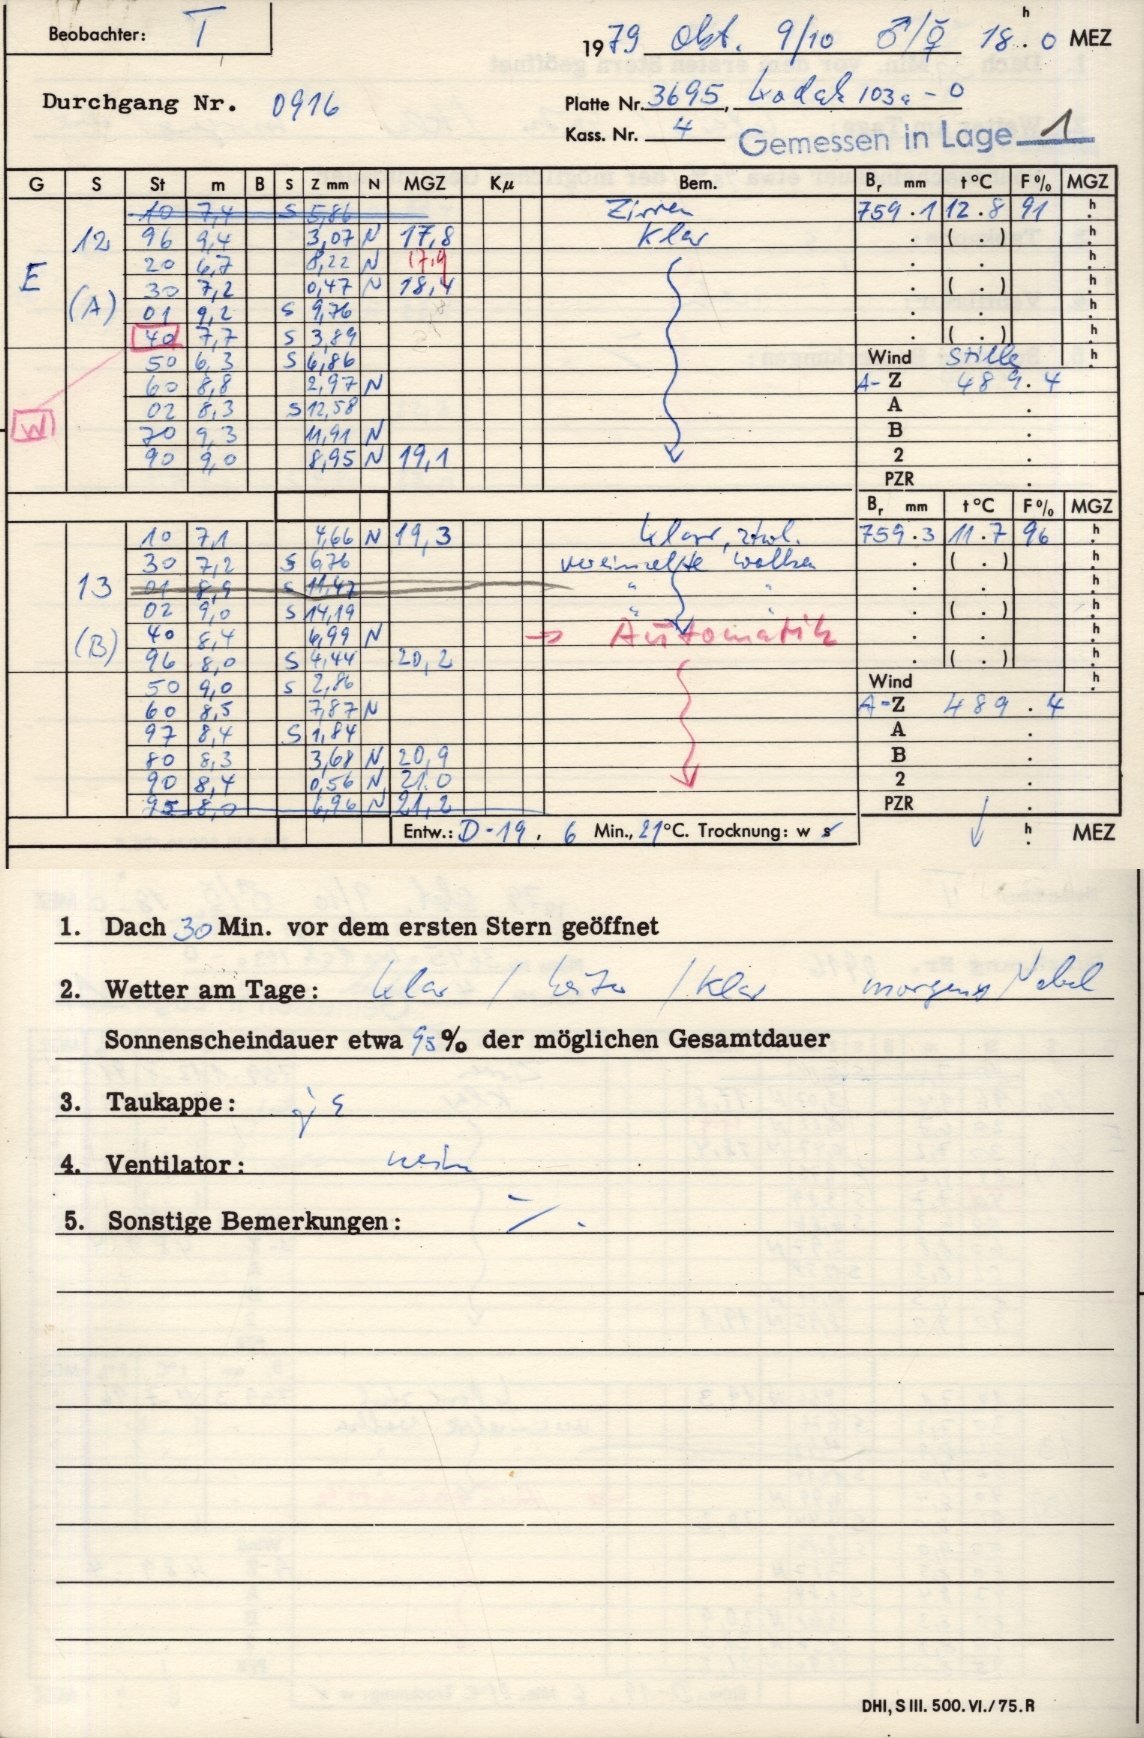 Beobachter: T
1979 Okt. 9/10 ♂/☿ 18h.0 MEZ
Durchgang Nr. 0916
Platte Nr. 3695, Kodak 103a-0
Kass. Nr. 4
Gemessen in Lage 1
G S St m B S Z mm N MGZ Kμ Bem. Br mm t°C F% MGZ
10 7,4 S 5,86 Zirren 759.1 12.8 91 h
12 96 9,4 3,07 N 17,8 klar . ( . ) h
20 6,7 8,22 N 17,9 . . h
E 30 7,2 0,47 N 18,4 . ( . ) h
(A) 01 9,2 S 9,76 . . h
40 7,7 S 3,89 . ( . ) h
50 6,3 S 6,86 Wind Stille h
60 8,8 2,97 N A-Z 489.4
W 02 8,3 S 12,58 A .
70 9,3 11,91 N B .
90 9,0 8,95 N 19,1 2 .
PZR .
Br mm t°C F% MGZ
10 7,1 4,66 N 19,3 klar, ztwl. 759.3 11.7 96 h
30 7,2 S 6,76 vereinzelte Wolken . ( . ) h
13 01 8,9 S 11,47 " " . . h
02 9,0 S 14,19 " " . ( . ) h
(B) 40 8,4 6,99 N → Automatik . . h
96 8,0 S 4,44 20,2 . ( . ) h
50 9,0 S 2,86 Wind h
60 8,5 7,87 N A-Z 489.4
97 8,4 S 1,84 A .
80 8,3 3,68 N 20,9 B .
90 8,4 0,56 N 21.0 2 .
95 8,0 6,96 N 21,2 PZR .
Entw.: D-19, 6 Min., 21°C. Trocknung: w s h MEZ
1. Dach 30 Min. vor dem ersten Stern geöffnet
2. Wetter am Tage: klar / heiter / klar morgens Nebel
Sonnenscheindauer etwa 95% der möglichen Gesamtdauer
3. Taukappe: ja
4. Ventilator: nein
5. Sonstige Bemerkungen: -/.
DHI, S III. 500. VI./75. R